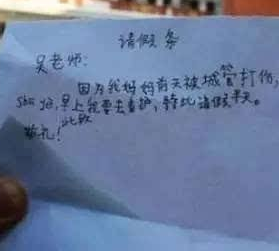 请假条
吴老师:
因为我妈妈前天被城管打伤,
早上我要去看护,特此请假半天。
此致
敬礼!